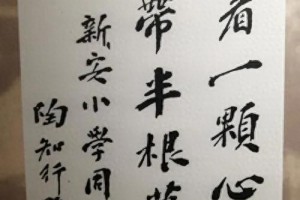 着一顆心
帶半根
新安小学同
陶知行